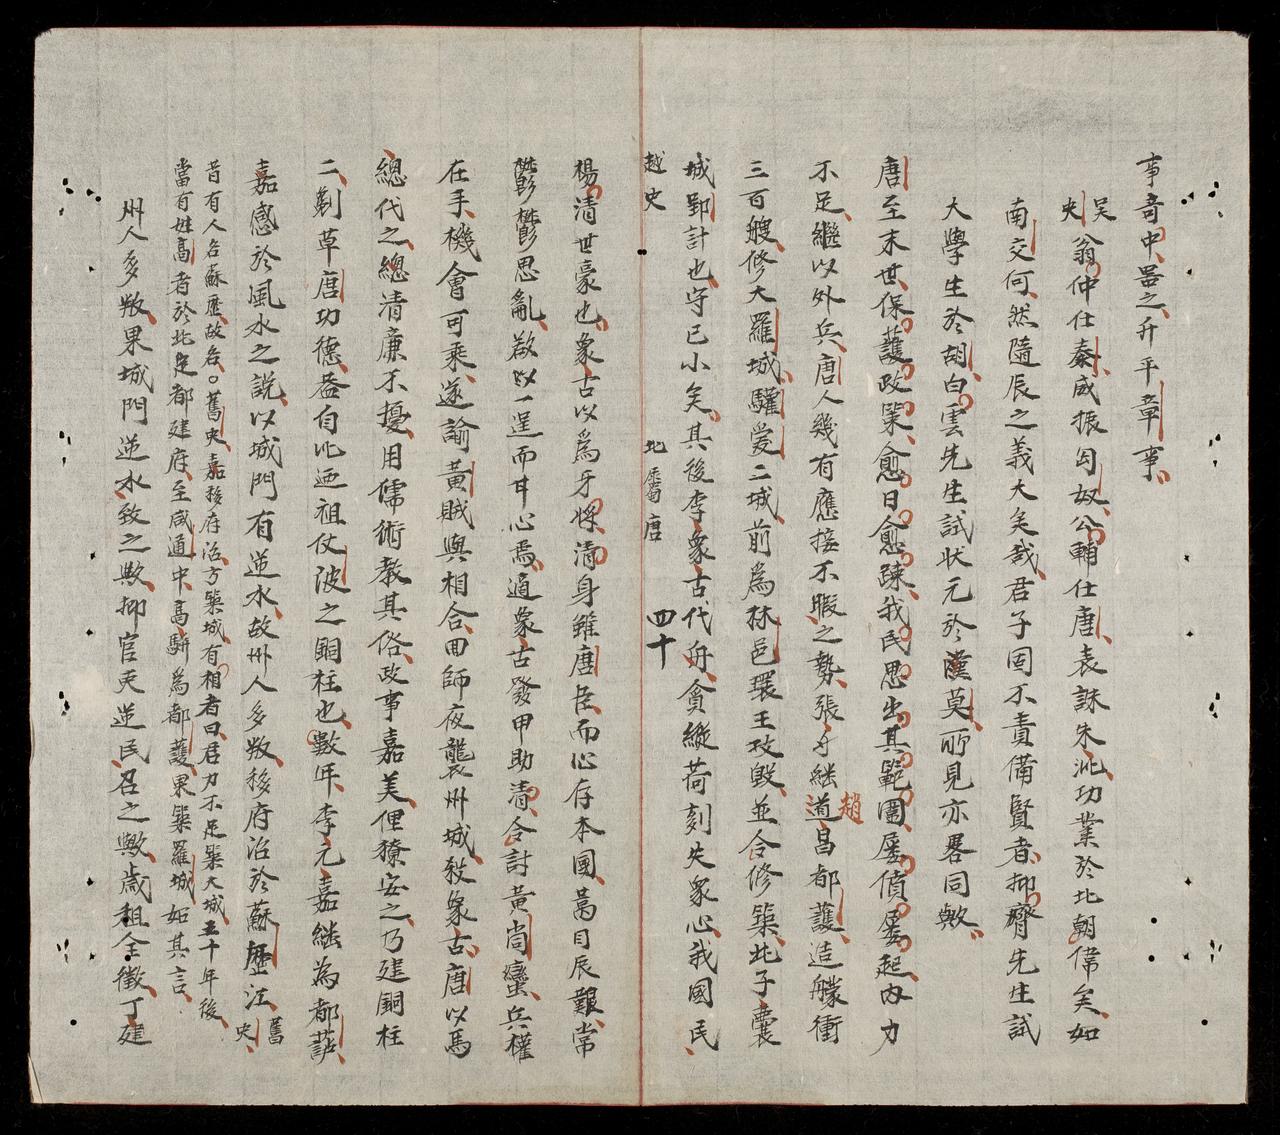 事奇中器之升平章事
吳史翁仲仕秦威振匈奴公輔仕唐袁誅朱泚功業於北朝偉矣如
南交何然隨辰之義大矣哉君子固不責備賢者抑齊先生試
大學生於胡白雲先生試狀元於漢莫所見亦畧同歟
唐至末世保護政策愈日愈踈我民思出其範圍屡僨屡起內力
不足繼以外兵唐人幾有應接不暇之勢張舟繼道昌都護造艨衝
趙
三百艘修大羅城驩愛二城前爲林邑環王攻毀並合修築北子囊
城郢計也守已小矣其後李象古代舟貪縱苛刻失衆心我國民
越史 北屬唐 四十
楊清世豪也象古以爲牙將清身雖唐臣而心存本國蒿目辰艱常
鬱鬱思亂欲以一逞而甘心焉適象古發甲助清合討黄尚蠻兵權
在手機會可乘遂諭黄賊與相合回師夜襲州城殺象古唐以馬
總代之總清廉不擾用儒術教其俗政事嘉美俚獠安之乃建銅柱
二劖草唐功德葢自比迺祖仗波之銅柱也數年李元嘉継為都護
嘉感於風水之說以城門有逆水故州人多叛移府治於蘇歷江舊史
昔有人名蘇歷故名○舊史嘉移府治方築城有相者曰君力不足築大城五十年後
當有姓高者於此定都建府至咸通中高駢為都護果築羅城如其言
州人多叛果城門逆水致之歟抑官天逆民召之歟歲租全徵丁建